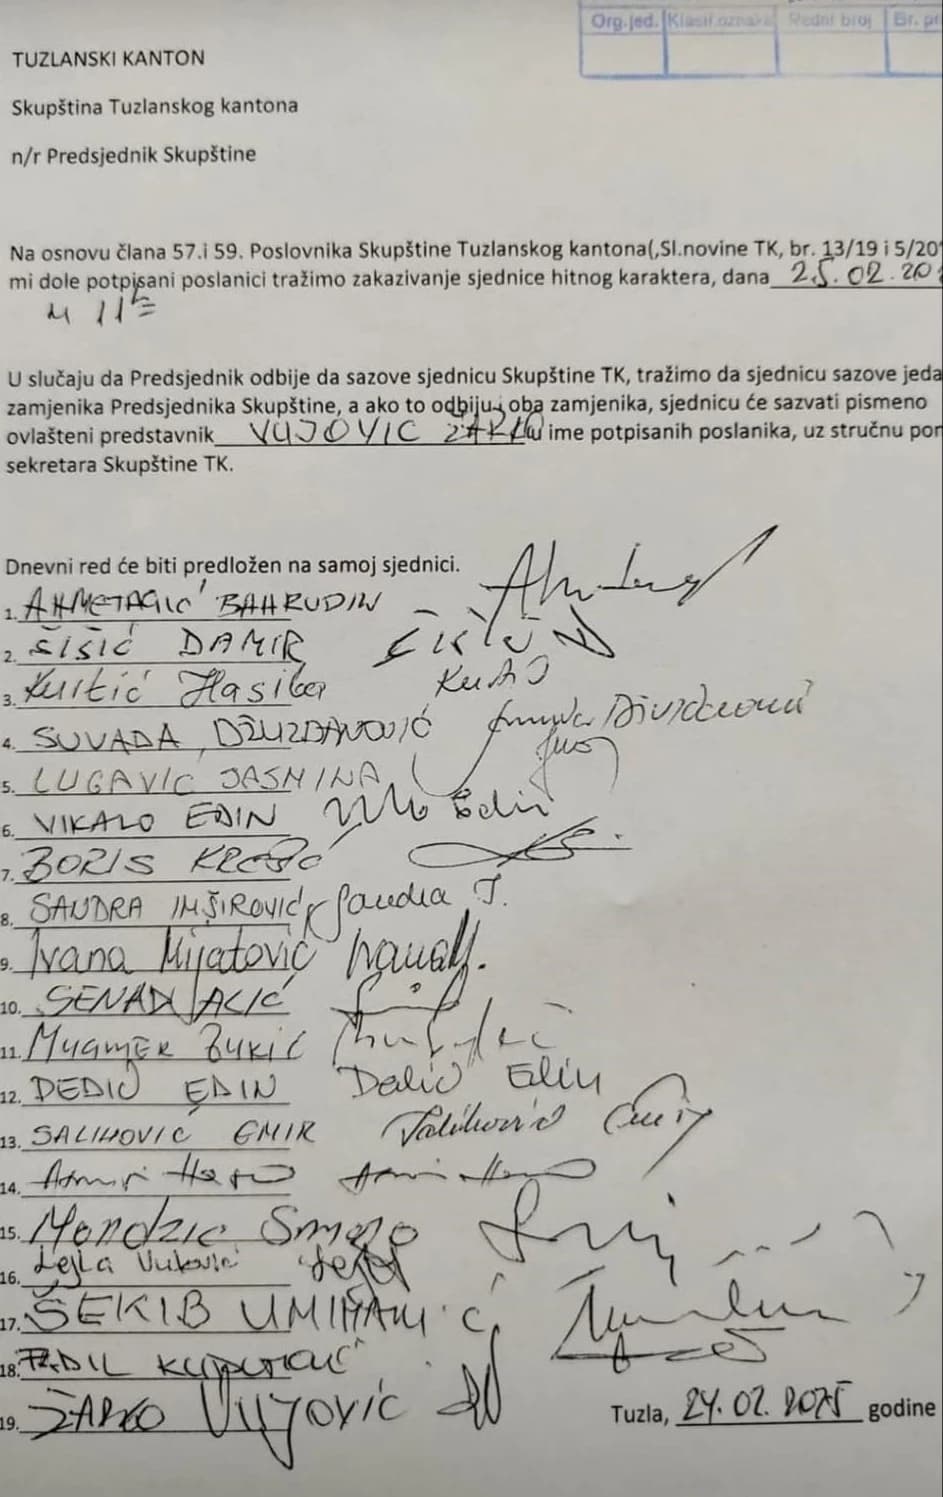 Org.jed. Klasif.oznaka Redni broj Br. pr
TUZLANSKI KANTON
Skupština Tuzlanskog kantona
n/r Predsjednik Skupštine
Na osnovu člana 57.i 59. Poslovnika Skupštine Tuzlanskog kantona(,Sl.novine TK, br. 13/19 i 5/20
mi dole potpisani poslanici tražimo zakazivanje sjednice hitnog karaktera, dana 25.02.20
u 11
U slučaju da Predsjednik odbije da sazove sjednicu Skupštine TK, tražimo da sjednicu sazove jeda
zamjenika Predsjednika Skupštine, a ako to odbiju oba zamjenika, sjednicu će sazvati pismeno
ovlašteni predstavnik VUJOVIC u ime potpisanih poslanika, uz stručnu pom
sekretara Skupštine TK.
Dnevni red će biti predložen na samoj sjednici.
1. AHMETAGIĆ BAHRUDIN
2. ŠIŠIĆ DAMIR
3. Kurtić Hasiba
4. SUVADA DŽUZDANOVIĆ
5. LUGAVIC JASMINA
6. VIKALO EDIN Edin
7. BORIS KREŠIĆ
8. SANDRA IMŠIROVIĆ Sandra I.
9. Ivana Mijatović IvanaM.
10. SENAD ALIĆ
11. Muamer Zukić
12. DEDIĆ EDIN Dedić Edin
13. SALIHOVIĆ EMIR Salihović Emir
14.
15. Mandzic Smajo
16. Lejla Vuković
17. ŠEKIB UMIHANIĆ
18. FADIL
19. ŽARKO VUJOVIĆ
Tuzla, 24.02.2025 godine